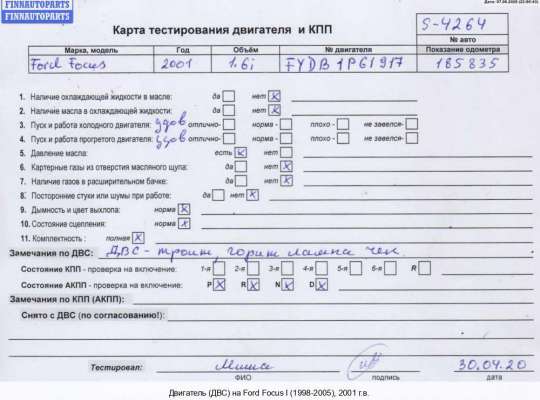 FINNAUTOPARTS
FINNAUTOPARTS
Карта тестирования двигателя и КПП
S-4264
№ авто
Марка, модель Год Объём № двигателя Показание одометра
Ford Focus 2001 1.6i FYDB 1P61917 185835
1. Наличие охлаждающей жидкости в масле: да нет x
2. Наличие масла в охлаждающей жидкости: да нет x
3. Пуск и работа холодного двигателя: удов отлично- норма - плохо - не завелся-
4. Пуск и работа прогретого двигателя: удов отлично- норма - плохо - не завелся-
5. Давление масла: есть x нет
6. Картерные газы из отверстия масляного щупа: да нет x
7. Наличие газов в расширительном бачке: да нет x
8. Посторонние стуки или шумы при работе: да нет x
9. Дымность и цвет выхлопа: норма x
10. Состояние сцепления: норма x
11. Комплектность : полная x
Замечания по ДВС: ДВС - троит, горит лампа чек
Состояние КПП - проверка на включение: 1-я 2-я - 3-я - 4-я - 5-я - 6-я - R
Состояние АКПП - проверка на включение: P x R x N x D x
Замечания по КПП (АКПП):
Снято с ДВС (по согласованию!):
Тестировал: Миша 30.04.20
ФИО подпись дата
Двигатель (ДВС) на Ford Focus I (1998-2005), 2001 г.в.